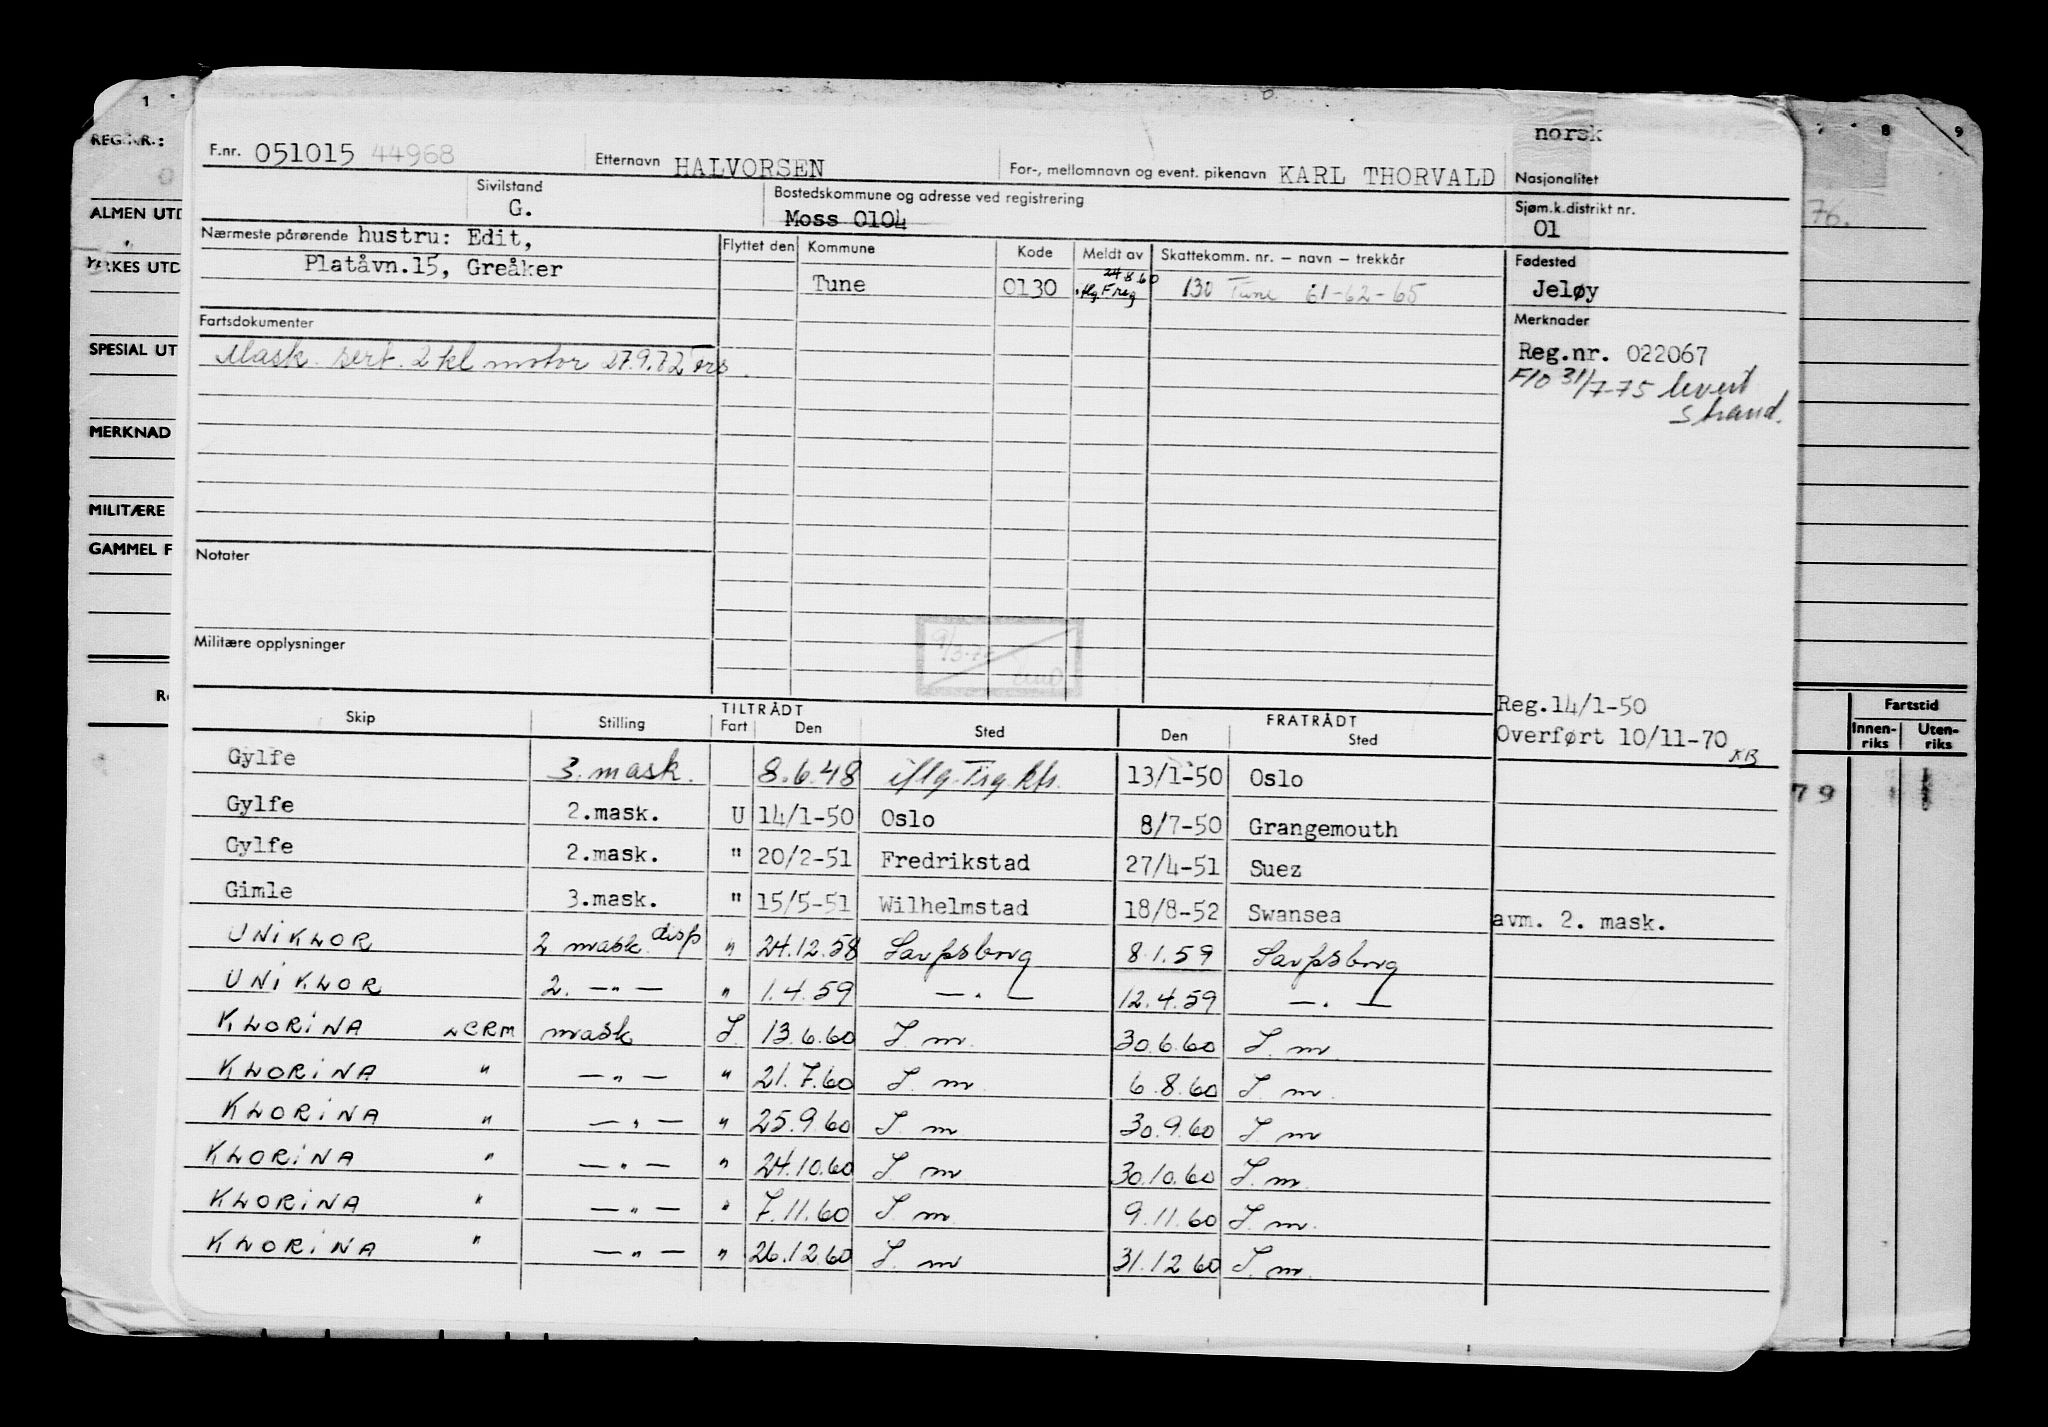 1 8 9
REG.NR.:
ALMEN UTD
YRKES UTD
SPESIAL UT
MERKNAD
MILITÆRE
GAMMEL F
76.
Fartstid
Innen-riks Uten-riks
79
norsk
F.nr. 051015 44968 Etternavn HALVORSEN For-, mellomnavn og event. pikenavn KARL THORVALD Nasjonalitet
Sivilstand G. Bostedskommune og adresse ved registrering Moss 0104 Sjøm.k.distrikt nr. 01
Nærmeste pårørende hustru: Edit, Flyttet den Kommune Kode Meldt av Skattekomm. nr. – navn – trekkår Fødested
Platåvn.15, Greåker Tune 0130 24 8 60 flg. Freg 130 Tune 61-62-65 Jeløy
Fartsdokumenter Merknader
Mask. sert. 2 kl motor 27.9.72 Reg.nr. 022067
F10 31/7-75 levert
Strand.
Notater
Militære opplysninger
9/3-76
Reg.14/1-50
Overført 10/11-70 KB
TILTRÅDT FRATRÅDT
Skip Stilling Fart Den Sted Den Sted
Gylfe 3. mask. 8.6.48 iflg. Trg. kk. 13/1-50 Oslo
Gylfe 2.mask. U 14/1-50 Oslo 8/7-50 Grangemouth
Gylfe 2.mask. " 20/2-51 Fredrikstad 27/4-51 Suez
Gimle 3.mask. " 15/5-51 Wilhelmstad 18/8-52 Swansea avm. 2. mask.
UNIKLOR 2 mask. disp " 24.12.58 Sarpsborg 8.1.59 Sarpsborg
UNIKLOR 2. — " — " 1.4.59 — " — 12.4.59 — " —
KLORINA LCRM mask I. 13.6.60 I. m. 30.6.60 I. m.
KLORINA " — " — " 21.7.60 I. m. 6.8.60 I. m.
KLORINA " — " — " 25.9.60 I. m 30.9.60 I. m
KLORINA " — " — " 24.10.60 I. m 30.10.60 I. m.
KLORINA " — " — " 7.11.60 I. m. 9.11.60 I. m.
KLORINA " — " — " 26.12.60 I. m 31.12.60 I. m.